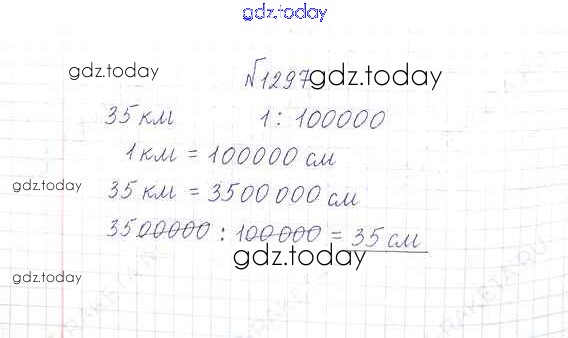 gdz.today
gdz.today №1297 gdz.today
35 км 1 : 100000
1 км = 100000 см
gdz.today 35 км = 3500000 см
3500000 : 100000 = 35 см
gdz.today
gdz.today
RAKETA.RU